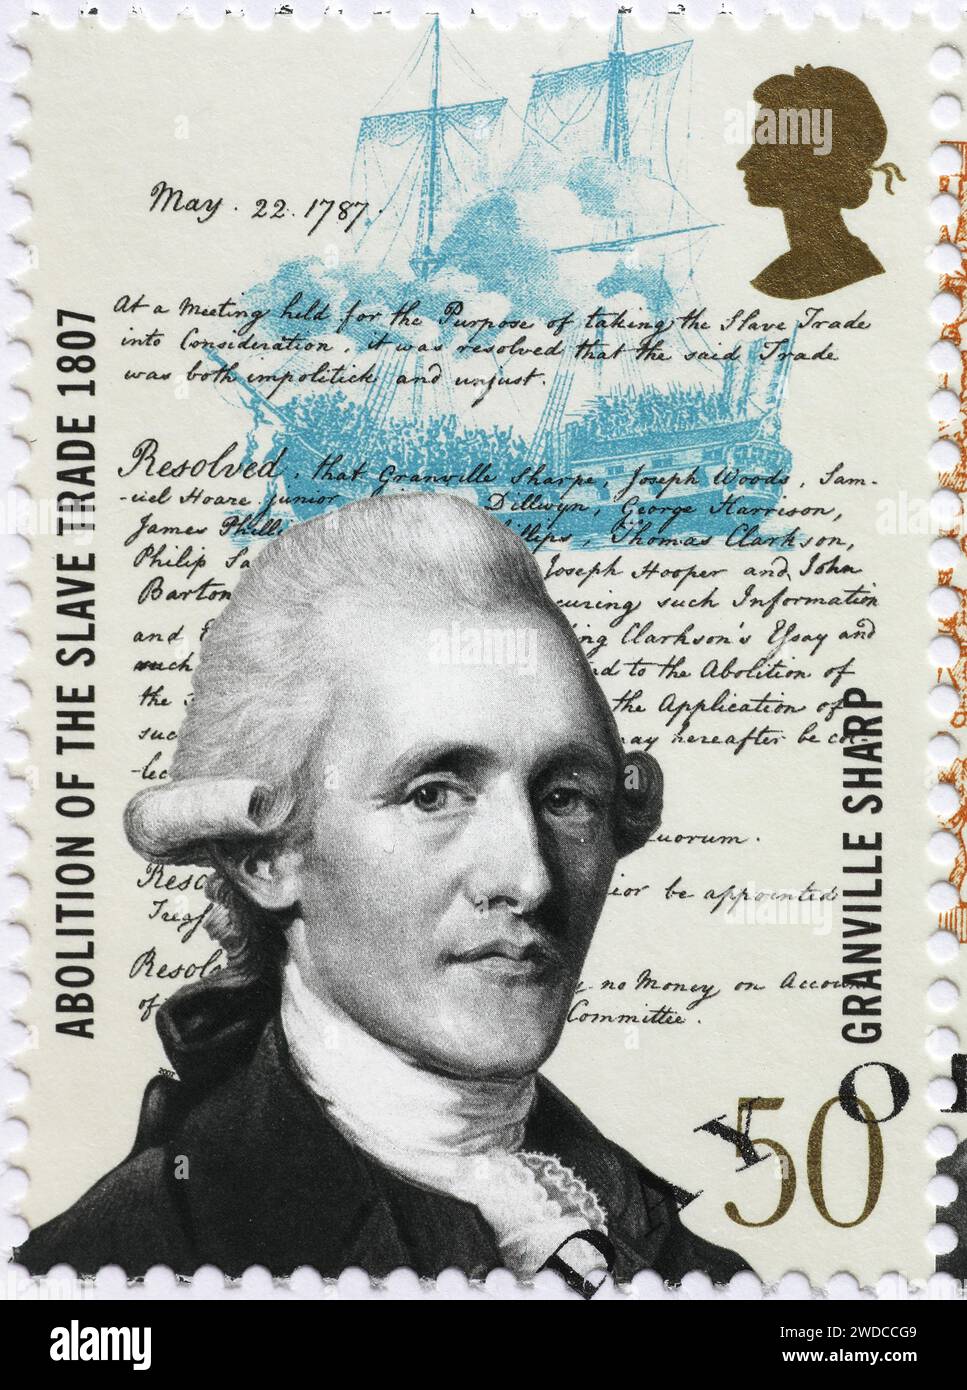 May. 22. 1787.
At a Meeting held for the Purpose of taking the Slave Trade
into Consideration, it was resolved that the said Trade
was both impolitick and unjust.
Resolved, that Granville Sharpe, Joseph Woods, Sam-
-uel Hoare junior Dillwyn, George Harrison,
James Philli llips, Thomas Clarkson,
Philip Sa Joseph Hooper and John
Barton curing such Information
and ing Clarkson's Essay and
such nd to the Abolition of
the the Application of
suc may hereafter be col-
-lec
uorum.
Reso ior be appointed
Treas
Resol no Money on Accoun
of Committee.
ABOLITION OF THE SLAVE TRADE 1807
GRANVILLE SHARP
50
DAY O
2007
alamy
Image ID: 2WDCCG9
www.alamy.com